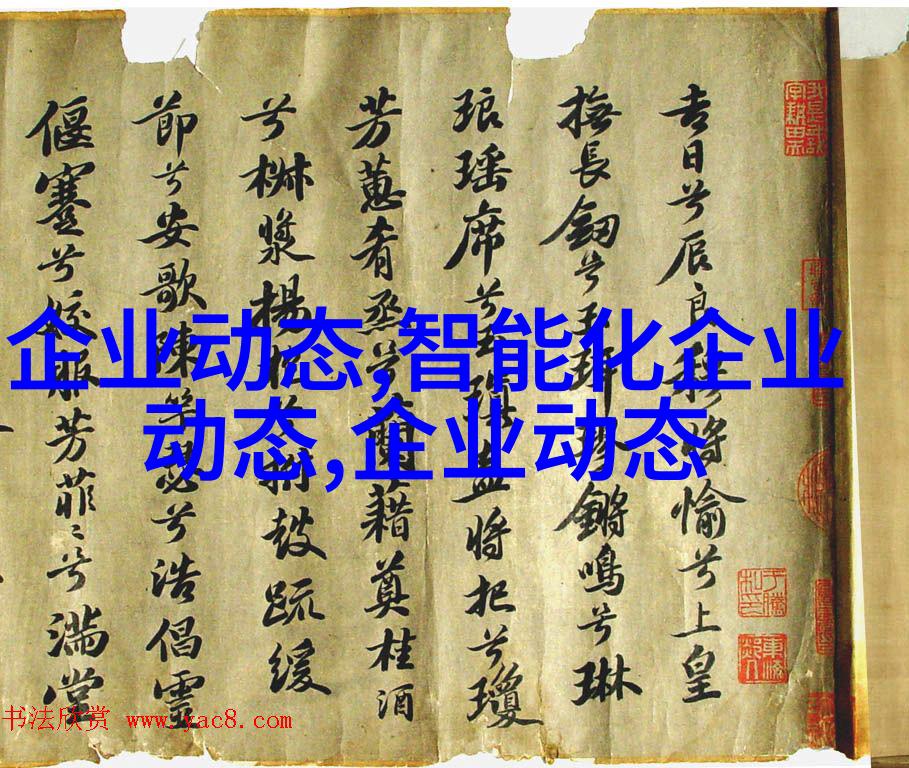 企业动态,智能化企业
动态,企业动态
吉日兮辰良穆將愉兮上皇
撫長劒兮玉珥璆鏘鳴兮琳
琅瑶席兮玉瑱盍將把兮瓊
芳蕙肴烝兮蘭藉奠桂酒
兮椒漿揚枹兮拊鼓疏緩
節兮安歌陳竽瑟兮浩倡靈
偃蹇兮姣服芳菲〻兮滿堂
书法欣赏 www.yac8.com